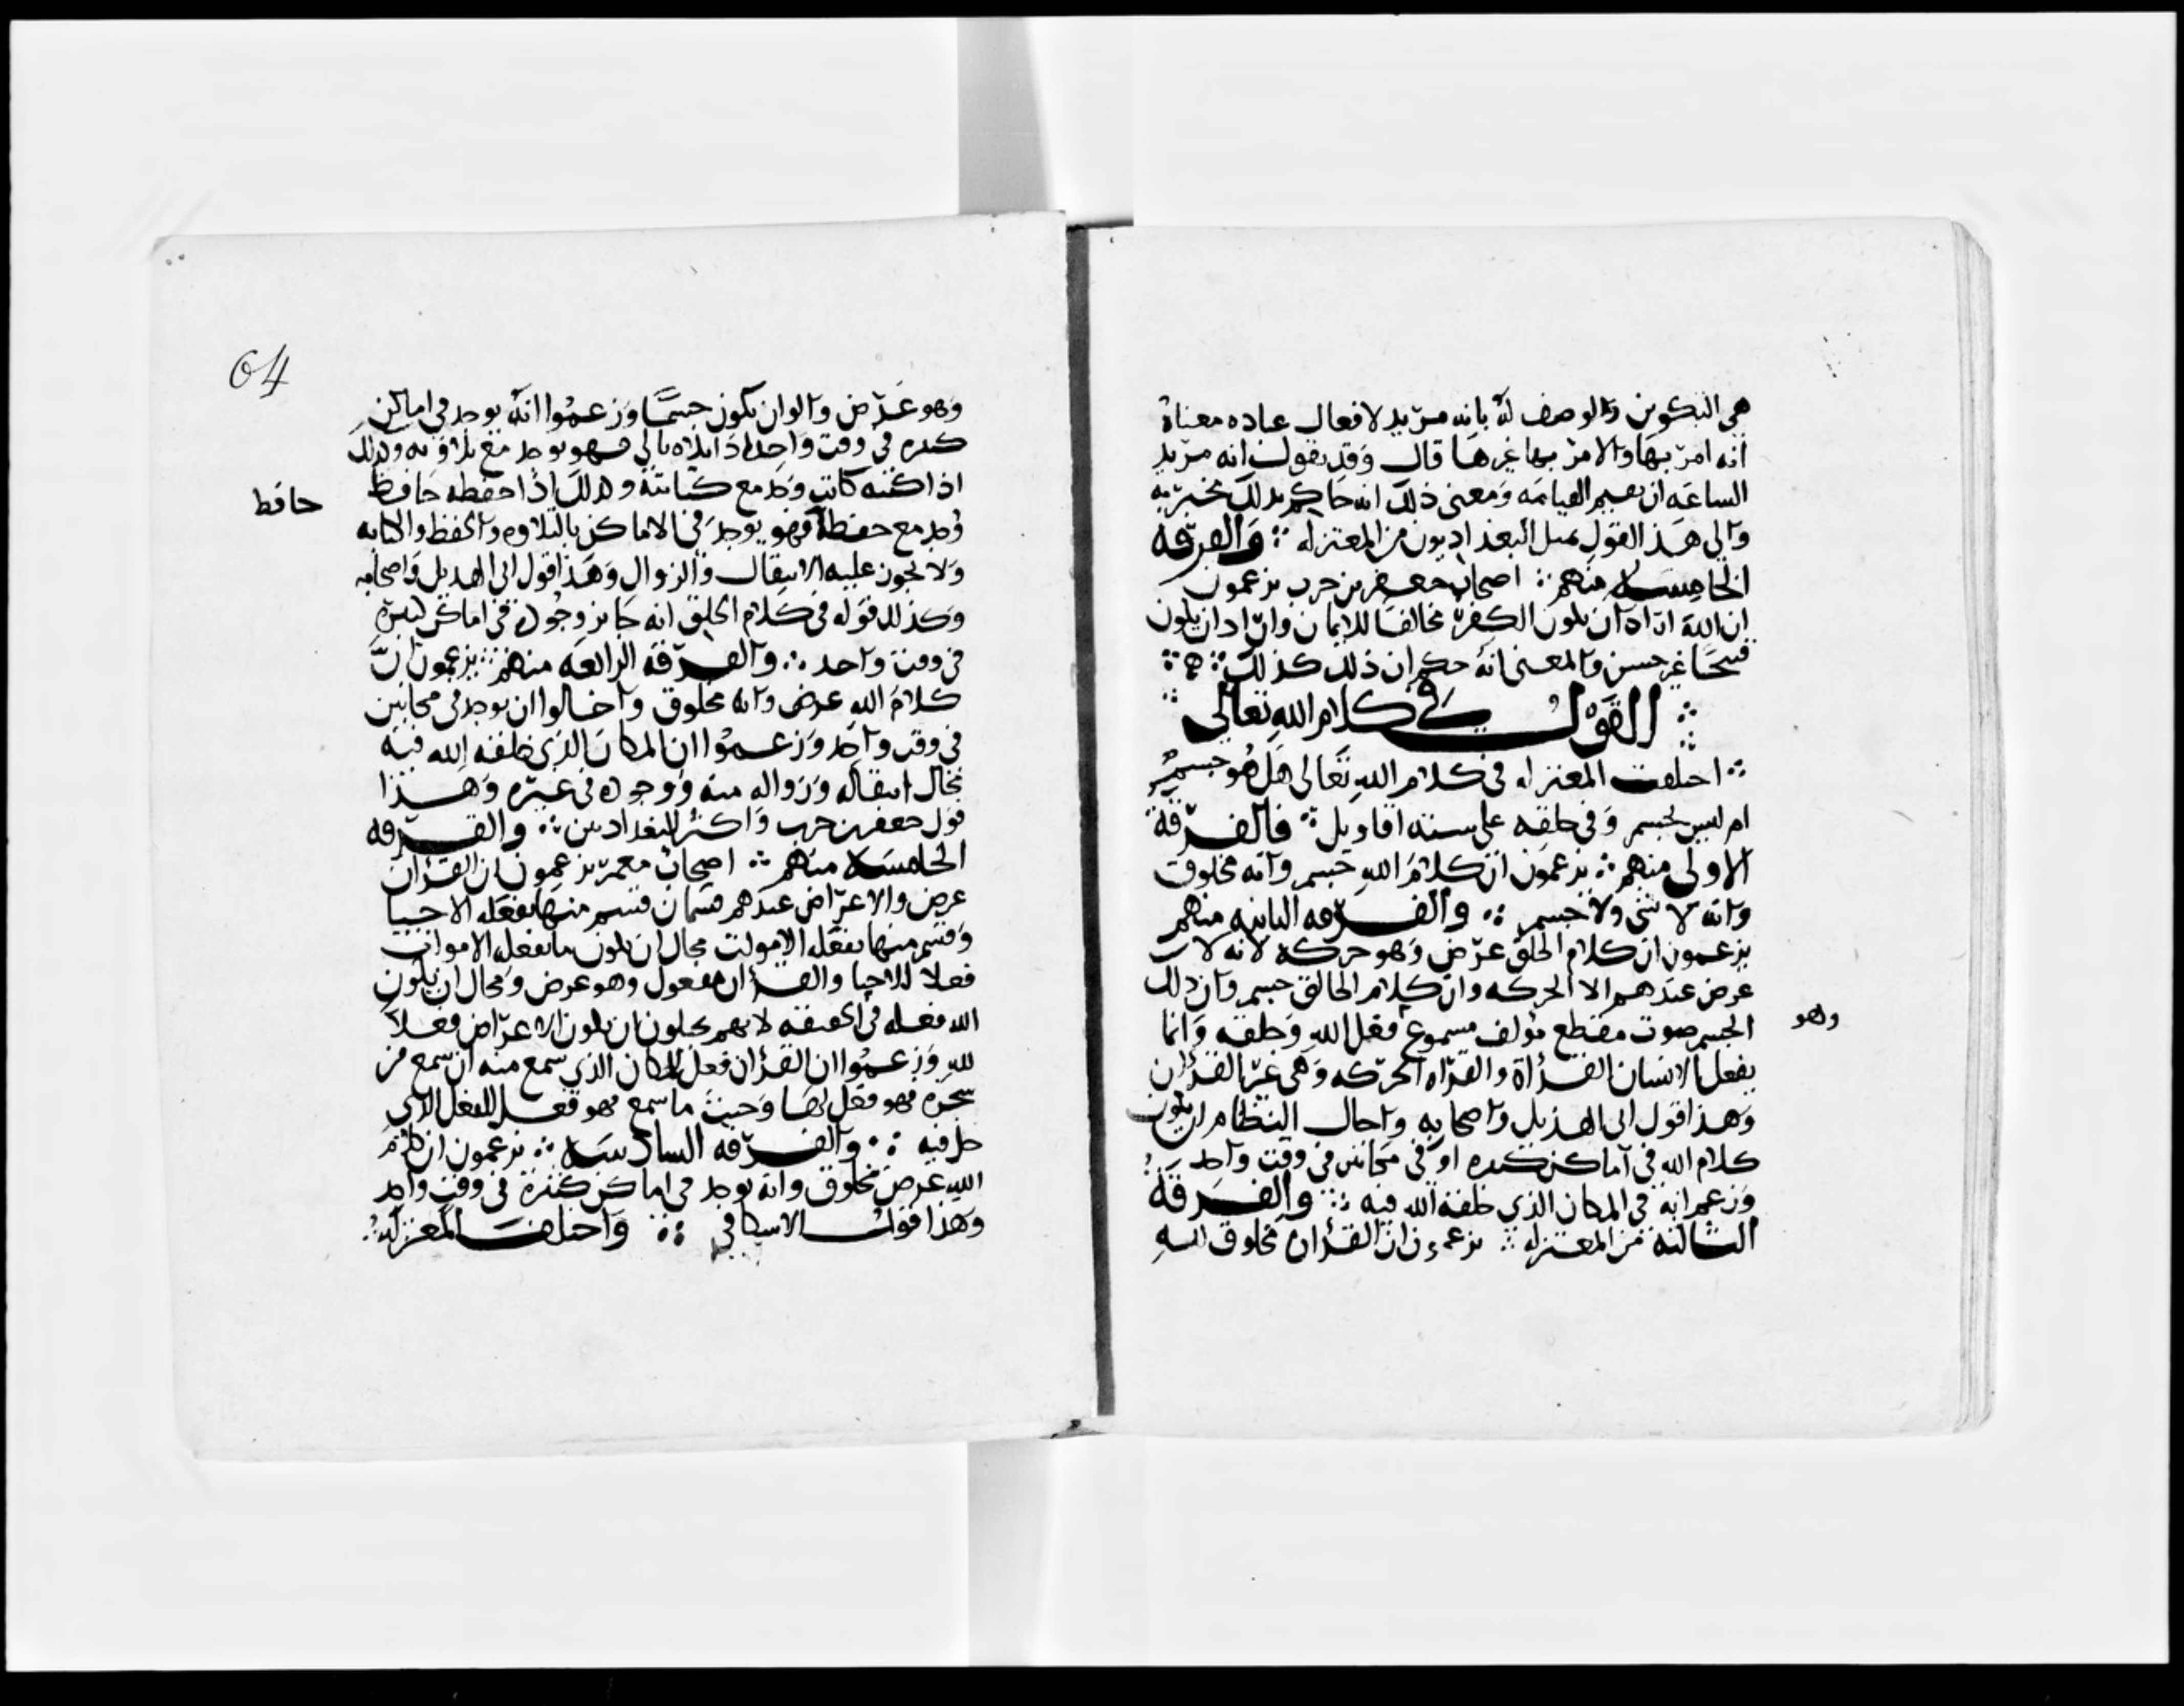 هي التكوين والوصف له بانه مريد لافعال عباده معناه
انه امر بها والامر بها غيرها قال وقد نقول انه مريد
الساعه ان يقيم القيامه ومعنى ذلك انه حاكم بذلك مخبر به
والى هذا القول يميل البغداديون من المعتزله ∴ والفرقه
الخامسه منهم ∴ اصحاب جعفر بن حرب يزعمون
ان الله اراد ان يكون الكفر مخالفا للايمان واراد ان يكون
قبيحا غير حسن والمعنى انه حكم ان ذلك كذلك ∴
القول في كلام الله تعالى
اختلفت المعتزله في كلام الله تعالى هل هو جسم
ام ليس بجسم وفي خلقه على سته اقاويل ∴ فالفرقة
الاولى منهم ∴ يزعمون ان كلام الله جسم وانه مخلوق
وانه لا شى الا جسم ∴ والفرقه الثانيه منهم
يزعمون ان كلام الخلق عرض وهو حركه لانه لا
عرض عندهم الا الحركه وان كلام الخالق جسم وان ذلك
الجسم صوت مقطع مؤلف مسموع فعل الله وخلقه وانما
وهو
يفعل الانسان القراة والقراه الحركه وهي غير القران
وهذا قول ابى الهذيل واصحابه واحال النظام ان يكون
كلام الله في اماكن كثيره او في مكانين في وقت واحد
وزعم انه في المكان الذي خلقه الله فيه ∴ والفرقه
الثالثه من المعتزله ∴ يزعمون ان القران مخلوق لله
64
وهو عرض وابوا ان يكون جسما وزعموا انه يوجد في اماكن
كثيره في وقت واحد اذا تلاه تالي فهو يوجد مع تلاوته وكذلك
اذا كتبه كاتب وجد مع كتابته وكذلك اذا حفظه حافظ
حافظ
وجد مع حفظه فهو يوجد في الاماكن بالتلاوه والحفظ والكتابه
ولا يجوز عليه الانتقال والزوال وهذا قول ابى الهذيل واصحابه
وكذلك قوله في كلام الخلق انه جايز وجوده في اماكن كثيره
في وقت واحد ∴ والفرقه الرابعه منهم ∴ يزعمون ان
كلام الله عرض وانه مخلوق واحالوا ان يوجد في مكانين
في وقت واحد وزعموا ان المكان الذي خلقه الله فيه
محال انتقاله وزواله منه ووجوده في غيره وهذا
قول جعفر بن حرب واكثر البغداديين ∴ والفرقه
الخامسه منهم ∴ اصحاب معمر يزعمون ان القران
عرض والاعراض عندهم قسمان قسم منها يفعله الاحيا
وقسم منها يفعله الاموات محال ان يكون ما يفعله الاموات
فعلا للاحيا والقران مفعول وهو عرض ومحال ان يكون
الله فعله في الحقيقه لانهم يحيلون ان يكون الاعراض فعلا
لله وزعموا ان القران فعل للمكان الذي يسمع منه ان سمع من
شجره فهو فعل لها وحيث ما سمع فهو فعل للمحل الذي
حل فيه ∴ والفرقه السادسه ∴ يزعمون ان كلام
الله عرض مخلوق وانه يوجد في اماكن كثيرة في وقت واحد
وهذا قول الاسكافي ∴ واختلفت المعتزله